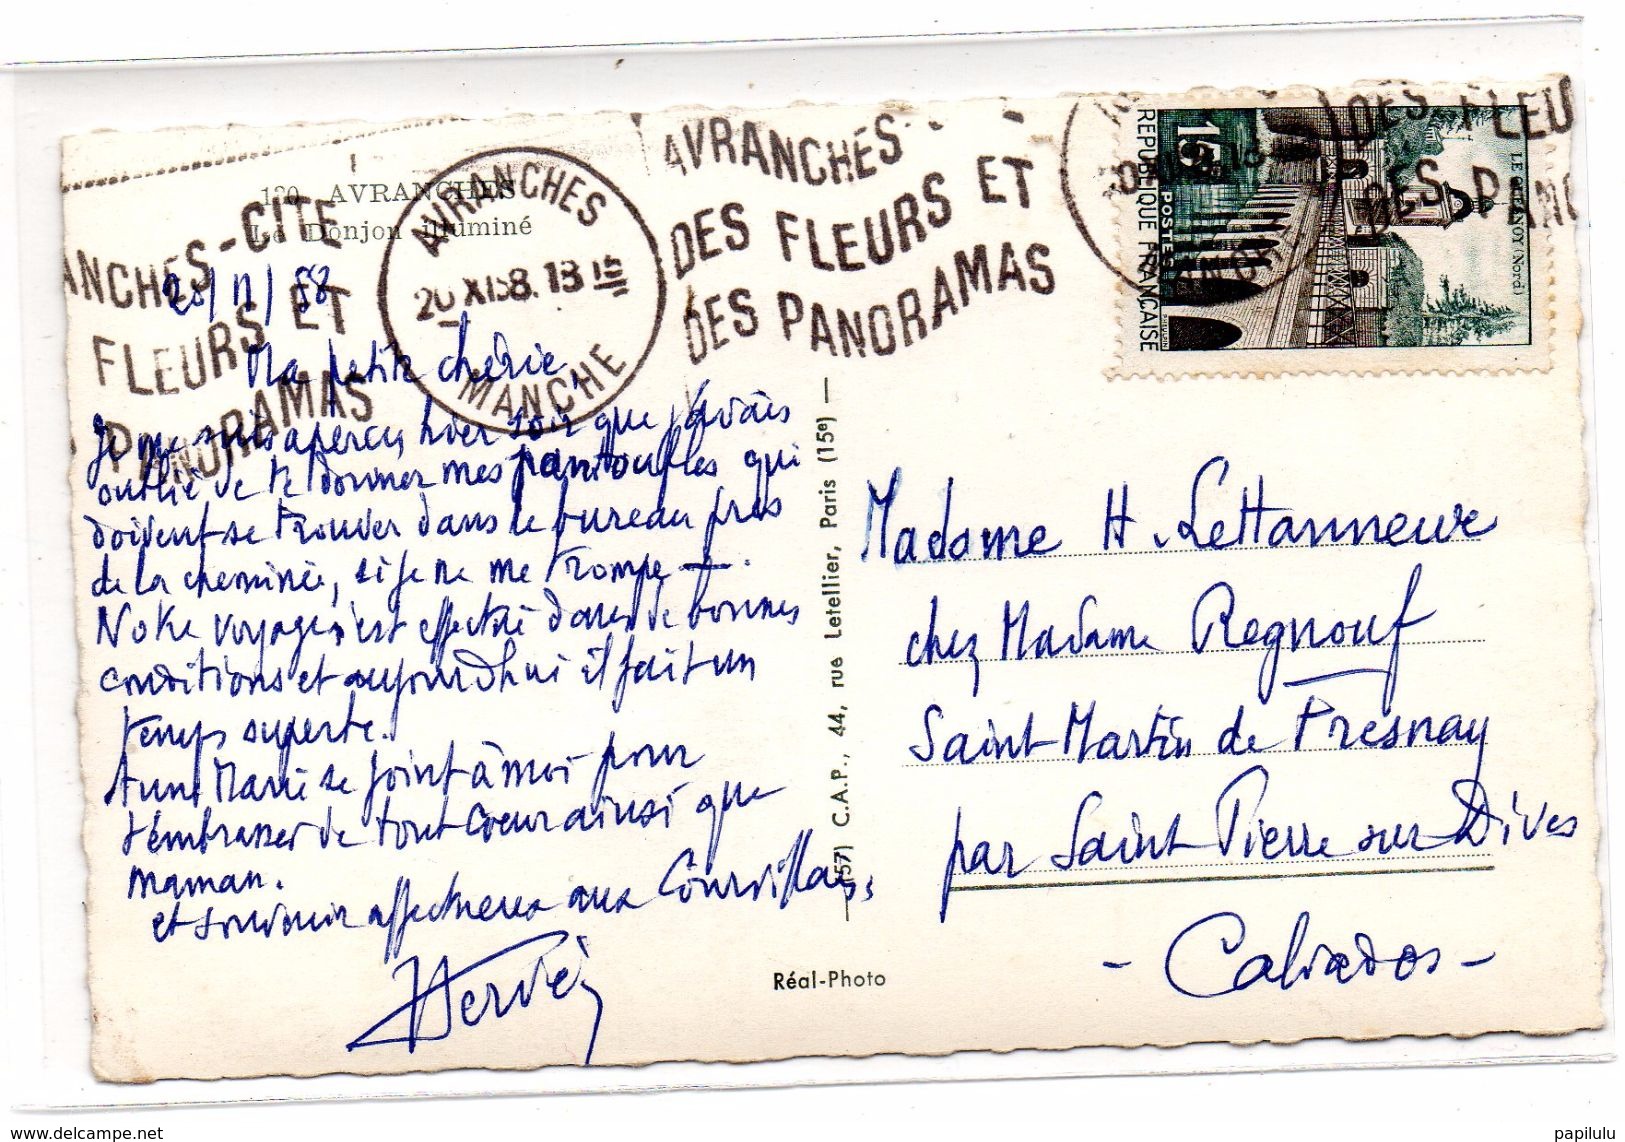 120 AVRANCHES
Le Donjon illuminé
AVRANCHES
20 XI 58. 18 H
MANCHE
ANCHES-CITE
FLEURS ET
PANORAMAS
AVRANCHES-
DES FLEURS ET
DES PANORAMAS
DES FLEU
DES PANO
15F
POSTES
REPUBLIQUE FRANÇAISE
LE QUESNOY (Nord)
20/11/58
Ma petite chérie,
Je me suis aperçu hier soir que j'avais
oublié de te donner mes pantoufles qui
doivent se trouver dans le bureau près
de la cheminée, si je ne me trompe.
Notre voyage s'est effectué dans de bonnes
conditions et aujourd'hui il fait un
temps superbe.
Anne Marie se joint à moi pour
t'embrasser de tout coeur ainsi que
maman.
et souvenir affectueux aux
Hervé
(57) C.A.P., 44, rue Letellier, Paris (15e)
Réal-Photo
Madame H. LeHanneur
chez Madame Regnouf
Saint Martin de Fresnay
par Saint Pierre sur Dives
- Calvados -
www.delcampe.net
papilulu